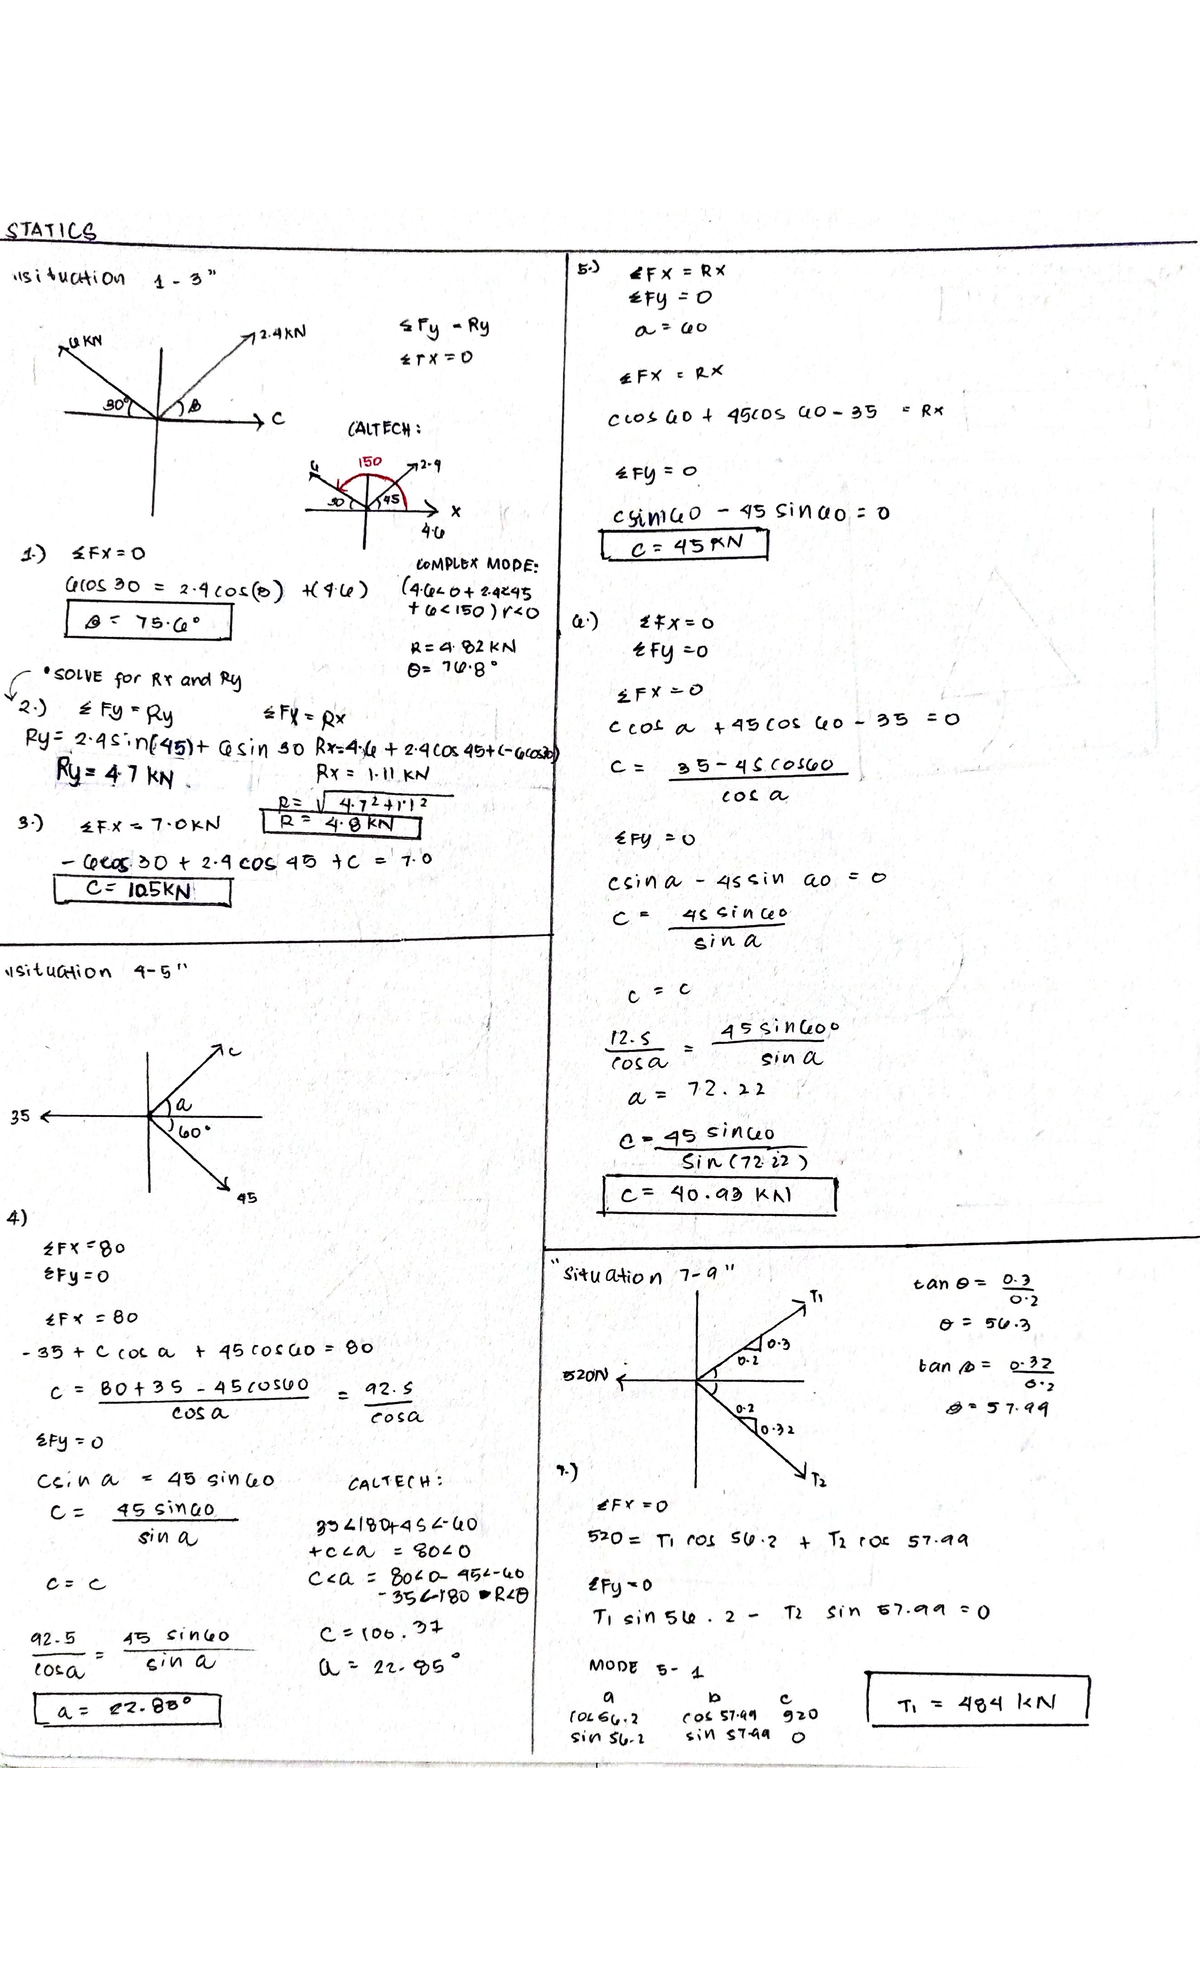 STATICS
"situation 1 - 3"
6 KN
2.4 KN
30°
B
C
ΣFy = Ry
ΣFx = 0
CALTECH:
6
150
2.4
30
45
x
4.6
1.) ΣFx = 0
6cos 30 = 2.4 cos(B) + (4.6)
B = 75.6°
COMPLEX MODE:
(4.6∠0 + 2.4∠45
+ 6∠150) r∠θ
R = 4.82 KN
θ = 76.8°
• SOLVE for Rx and Ry
2.) Σ Fy = Ry
Ry = 2.4 sin(45) + 6 sin 30
Ry = 4.7 KN.
ΣFx = Rx
Rx = 4.6 + 2.4 cos 45 + (-6cos30)
Rx = 1.11 KN
R = √4.7² + 1.1²
R = 4.8 KN
3.) ΣFx = 7.0KN
- 6cos 30 + 2.4 cos 45 + C = 7.0
C = 10.5KN
"situation 4-5"
C
a
35
60°
45
4)
ΣFx = 80
ΣFy = 0
ΣFx = 80
- 35 + C cos a + 45 cos 60 = 80
C = 80 + 35 - 45 cos60 / cos a = 92.5 / cosa
ΣFy = 0
Csin a = 45 sin 60
C = 45 sin60 / sin a
C = C
92.5 / cosa = 45 sin60 / sin a
a = 22.85°
CALTECH:
35∠180 + 45∠-60
+ C∠a = 80∠0
C∠a = 80∠0 - 45∠-60
- 35∠-180 ▸ R∠θ
C = 100.37
a = 22.85°
5.) ΣFx = Rx
ΣFy = 0
a = 60
ΣFx = Rx
Ccos 60 + 45cos 60 - 35 = Rx
ΣFy = 0
Csin60 - 45 sin 60 = 0
C = 45 KN
6.) ΣFx = 0
ΣFy = 0
ΣFx = 0
C cos a + 45 cos 60 - 35 = 0
C = 35 - 45 cos60 / cos a
ΣFy = 0
Csin a - 45 sin 60 = 0
C = 45 sin 60 / sin a
C = C
12.5 / cosa = 45 sin60° / sin a
a = 72.22
C = 45 sin60 / sin (72.22)
C = 40.93 KN
"situation 7-9"
T1
0.3
0.2
520N
0.2
0.32
T2
tan θ = 0.3 / 0.2
θ = 56.3
tan β = 0.32 / 0.2
β = 57.99
7.)
ΣFx = 0
520 = T1 cos 56.2 + T2 cos 57.99
ΣFy = 0
T1 sin 56.2 - T2 sin 57.99 = 0
MODE 5 - 1
a b c
cos 56.2 cos 57.99 520
sin 56.2 sin 57.99 0
T1 = 484 KN